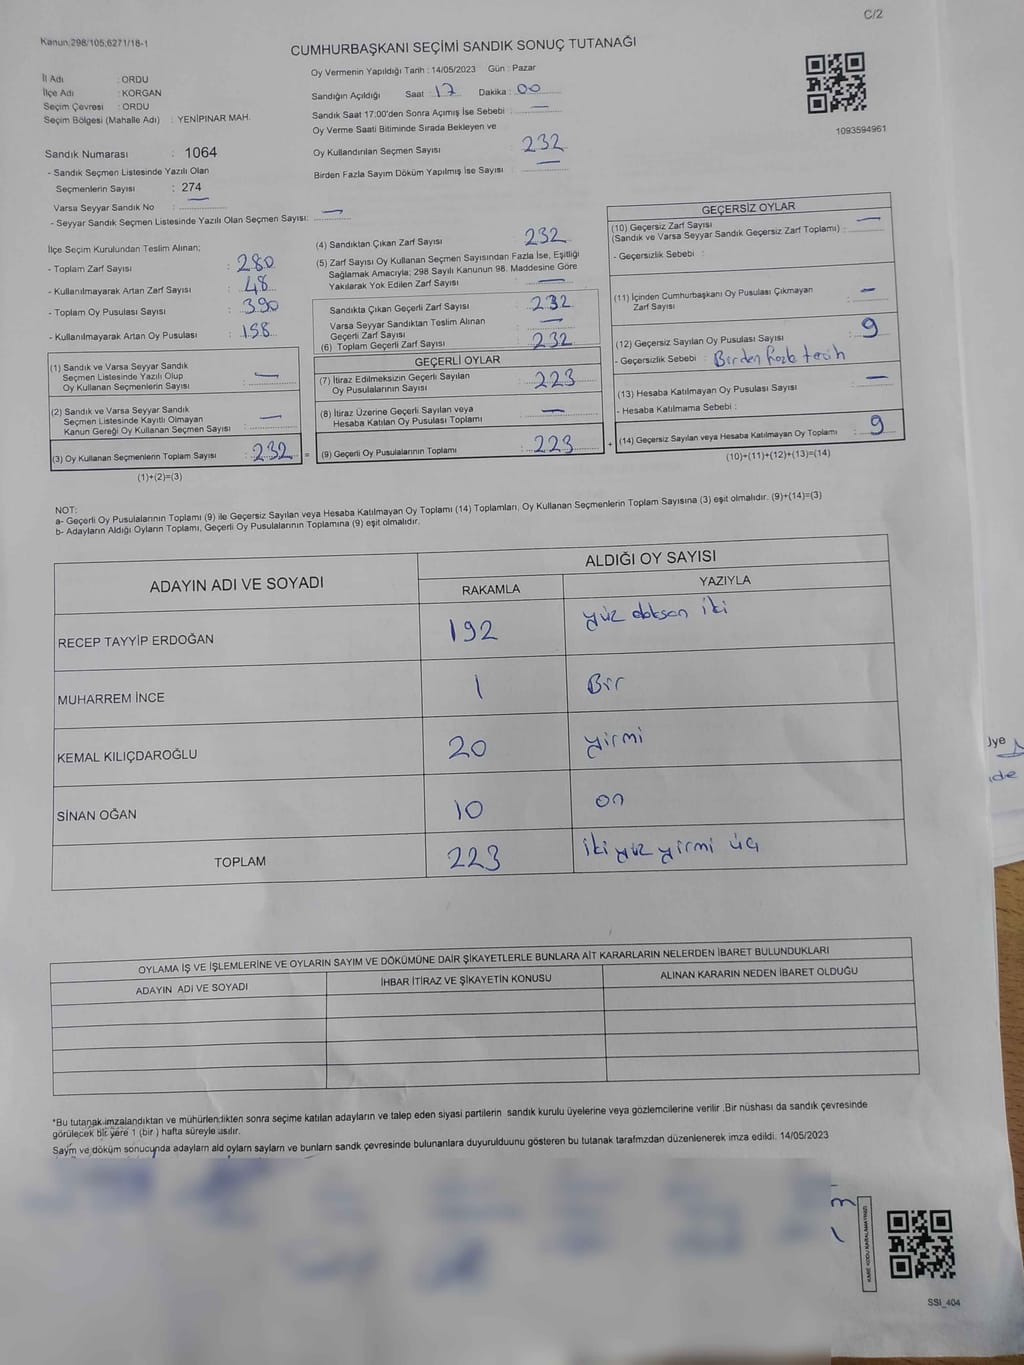 C/2
Kanun:298/105,6271/18-1
CUMHURBAŞKANI SEÇİMİ SANDIK SONUÇ TUTANAĞI
İl Adı : ORDU
İlçe Adı : KORGAN
Seçim Çevresi : ORDU
Seçim Bölgesi (Mahalle Adı) : YENİPINAR MAH.
Oy Vermenin Yapıldığı Tarih : 14/05/2023 Gün : Pazar
Sandığın Açıldığı Saat 17 Dakika : 00
Sandık Saat 17:00'den Sonra Açımış İse Sebebi : —
Oy Verme Saati Bitiminde Sırada Bekleyen ve
Oy Kullandırılan Seçmen Sayısı : 232
Birden Fazla Sayım Döküm Yapılmış İse Sayısı : —
1093594961
Sandık Numarası : 1064
- Sandık Seçmen Listesinde Yazılı Olan
Seçmenlerin Sayısı : 274
Varsa Seyyar Sandık No : —
- Seyyar Sandık Seçmen Listesinde Yazılı Olan Seçmen Sayısı: —
İlçe Seçim Kurulundan Teslim Alınan;
- Toplam Zarf Sayısı : 280
- Kullanılmayarak Artan Zarf Sayısı : 48
- Toplam Oy Pusulası Sayısı : 390
- Kullanılmayarak Artan Oy Pusulası : 158
(1) Sandık ve Varsa Seyyar Sandık
Seçmen Listesinde Yazılı Olup
Oy Kullanan Seçmenlerin Sayısı : —
(2) Sandık ve Varsa Seyyar Sandık
Seçmen Listesinde Kayıtlı Olmayan
Kanun Gereği Oy Kullanan Seçmen Sayısı : —
(3) Oy Kullanan Seçmenlerin Toplam Sayısı : 232
(1)+(2)=(3)
(4) Sandıktan Çıkan Zarf Sayısı : 232
(5) Zarf Sayısı Oy Kullanan Seçmen Sayısından Fazla İse, Eşitliği
Sağlamak Amacıyla; 298 Sayılı Kanunun 98. Maddesine Göre
Yakılarak Yok Edilen Zarf Sayısı : —
Sandıkta Çıkan Geçerli Zarf Sayısı : 232
Varsa Seyyar Sandıktan Teslim Alınan
Geçerli Zarf Sayısı : —
(6) Toplam Geçerli Zarf Sayısı : 232
GEÇERLİ OYLAR
(7) İtiraz Edilmeksizin Geçerli Sayılan
Oy Pusulalarının Sayısı : 223
(8) İtiraz Üzerine Geçerli Sayılan veya
Hesaba Katılan Oy Pusulası Toplamı : —
= (9) Geçerli Oy Pusulalarının Toplamı : 223 +
GEÇERSİZ OYLAR
(10) Geçersiz Zarf Sayısı
(Sandık ve Varsa Seyyar Sandık Geçersiz Zarf Toplamı) : —
- Geçersizlik Sebebi :
(11) İçinden Cumhurbaşkanı Oy Pusulası Çıkmayan
Zarf Sayısı : —
(12) Geçersiz Sayılan Oy Pusulası Sayısı : 9
- Geçersizlik Sebebi : Birden fazla tercih
(13) Hesaba Katılmayan Oy Pusulası Sayısı : —
- Hesaba Katılmama Sebebi :
(14) Geçersiz Sayılan veya Hesaba Katılmayan Oy Toplamı : 9
(10)+(11)+(12)+(13)=(14)
NOT:
a- Geçerli Oy Pusulalarının Toplamı (9) ile Geçersiz Sayılan veya Hesaba Katılmayan Oy Toplamı (14) Toplamları, Oy Kullanan Seçmenlerin Toplam Sayısına (3) eşit olmalıdır. (9)+(14)=(3)
b- Adayların Aldığı Oyların Toplamı, Geçerli Oy Pusulalarının Toplamına (9) eşit olmalıdır.
ADAYIN ADI VE SOYADI ALDIĞI OY SAYISI
RAKAMLA YAZIYLA
RECEP TAYYİP ERDOĞAN 192 yüz doksan iki
MUHARREM İNCE 1 Bir
KEMAL KILIÇDAROĞLU 20 yirmi
SİNAN OĞAN 10 on
TOPLAM 223 iki yüz yirmi üç
OYLAMA İŞ VE İŞLEMLERİNE VE OYLARIN SAYIM VE DÖKÜMÜNE DAİR ŞİKAYETLERLE BUNLARA AİT KARARLARIN NELERDEN İBARET BULUNDUKLARI
ADAYIN ADI VE SOYADI İHBAR İTİRAZ VE ŞİKAYETİN KONUSU ALINAN KARARIN NEDEN İBARET OLDUĞU
*Bu tutanak imzalandıktan ve mühürlendikten sonra seçime katılan adayların ve talep eden siyasi partilerin sandık kurulu üyelerine veya gözlemcilerine verilir .Bir nüshası da sandık çevresinde
görülecek bir yere 1 (bir ) hafta süreyle asılır.
Sayım ve döküm sonucunda adayların ald oyların sayları ve bunların sandk çevresinde bulunanlara duyurulduunu gösteren bu tutanak tarafmzdan düzenlenerek imza edildi. 14/05/2023
SSI_404